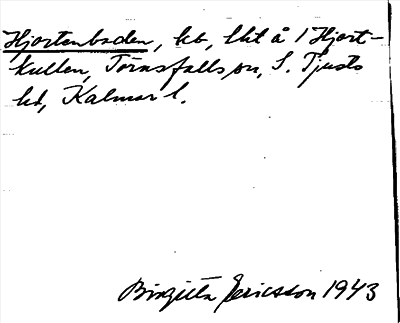 Hjortenboden, kb, lht å 1 Hjort-
kullen, Törnsfalls sn, S. Tjusts
hd, Kalmar l.
Birgitta Ericsson 1943